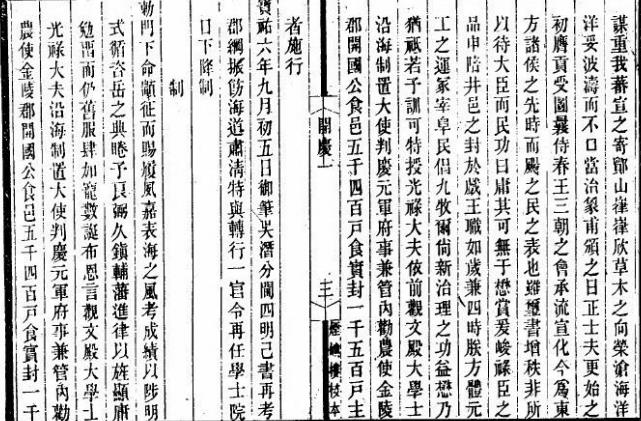 謀重我蕃宣之寄鄮山嶐嶐欣草木之向榮滄海洋
洋妥波濤而不口當治象甫頒之日正士夫更始之
初膺貢受圖曩侍春王三朝之會承流宣化今爲東
方諸侯之先時而颺之民之表也雖璽書增秩非所
以待大臣而民功曰庸其可無于懋賞爰峻祿臣之
品申陪井邑之封於戲王職如歲兼四時朕方體元
工之運冢宰阜民倡九牧爾尙新治理之功益懋乃
猶祗若予訓可特授光祿大夫依前觀文殿大學士
沿海制置大使判慶元軍府事兼管內勸農使金陵
郡開國公食邑五千四百戸食實封一千五百戸主
者施行
開慶一
三
煙嶼樓校本
寳祐六年九月初五日御筆吳潛分閫四明已書再考
郡綱振飭海道肅淸特與轉行一官令再任學士院
日下降制
制
勅門下命顓征而賜履風嘉表海之風考成績以陟明
式循咨岳之典睠予良弼久鎭輔藩進律以旌顯庸
勉畱而仍舊服肆加寵數誕布恩言觀文殿大學士
光祿大夫沿海制置大使判慶元軍府事兼管內勸
農使金陵郡開國公食邑五千四百戸食實封一千